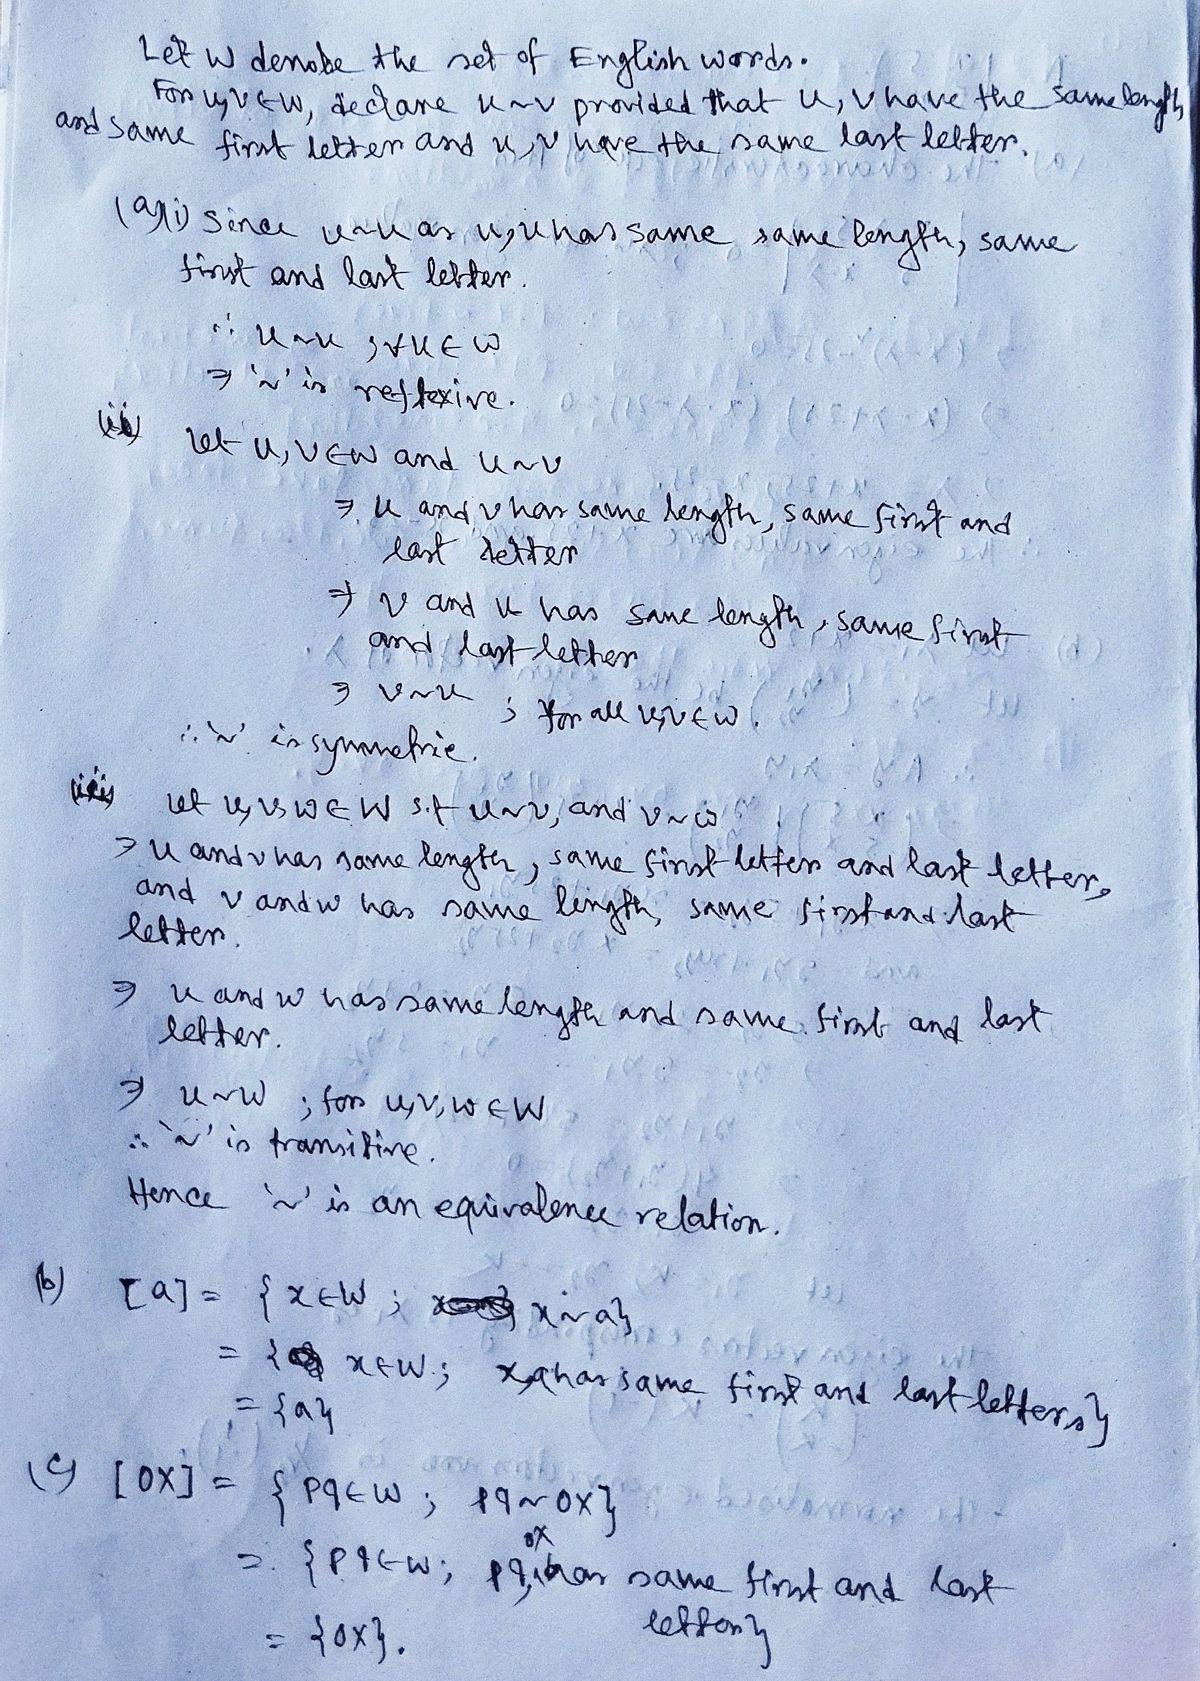 Let W denote the set of English words.
For u,v∈W, declare u~v provided that u,v have the same length
and same first letter and u,v have the same last letter.
(a)(i) Since u~u as u,u has same same length, same
first and last letter.
∴ u~u ; ∀u∈W
⇒ '~' is reflexive.
(ii) let u,v∈W and u~v
⇒ u and v has same length, same first and
last letter
⇒ v and u has same length, same first
and last letter
⇒ v~u ; for all u,v∈W.
∴ '~' is symmetric.
(iii) let u,v,w∈W s.t u~v, and v~w
⇒ u and v has same length, same first letter and last letter,
and v and w has same length, same first and last
letter.
⇒ u and w has same length and same first and last
letter.
⇒ u~w ; for u,v,w∈W
∴ '~' is transitive.
Hence '~' is an equivalence relation.
(b) [a] = {x∈W ; x~a}
= { x∈W ; x,a has same first and last letters}
= {a}
(c) [ox] = {pq∈W ; pq~ox}
= {pq∈W ; pq,ox has same first and last
letter}
= {ox}.